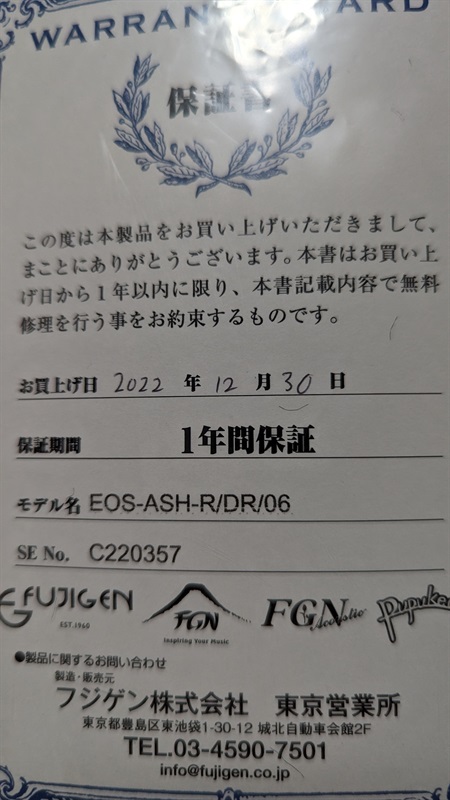 WARRAN ARD
保証書
この度は本製品をお買い上げいただきまして、
まことにありがとうございます。本書はお買い上
げ日から1年以内に限り、本書記載内容で無料
修理を行う事をお約束するものです。
お買上げ日 2022 年 12 月 30 日
保証期間 1年間保証
モデル名 EOS-ASH-R/DR/06
SE No. C220357
FUJIGEN EST.1960 FGN Inspiring Your Music FGN Acoustic Pupuke
●製品に関するお問い合わせ
製造・販売元
フジゲン株式会社 東京営業所
東京都豊島区東池袋1-30-12 城北自動車会館2F
TEL.03-4590-7501
info@fujigen.co.jp